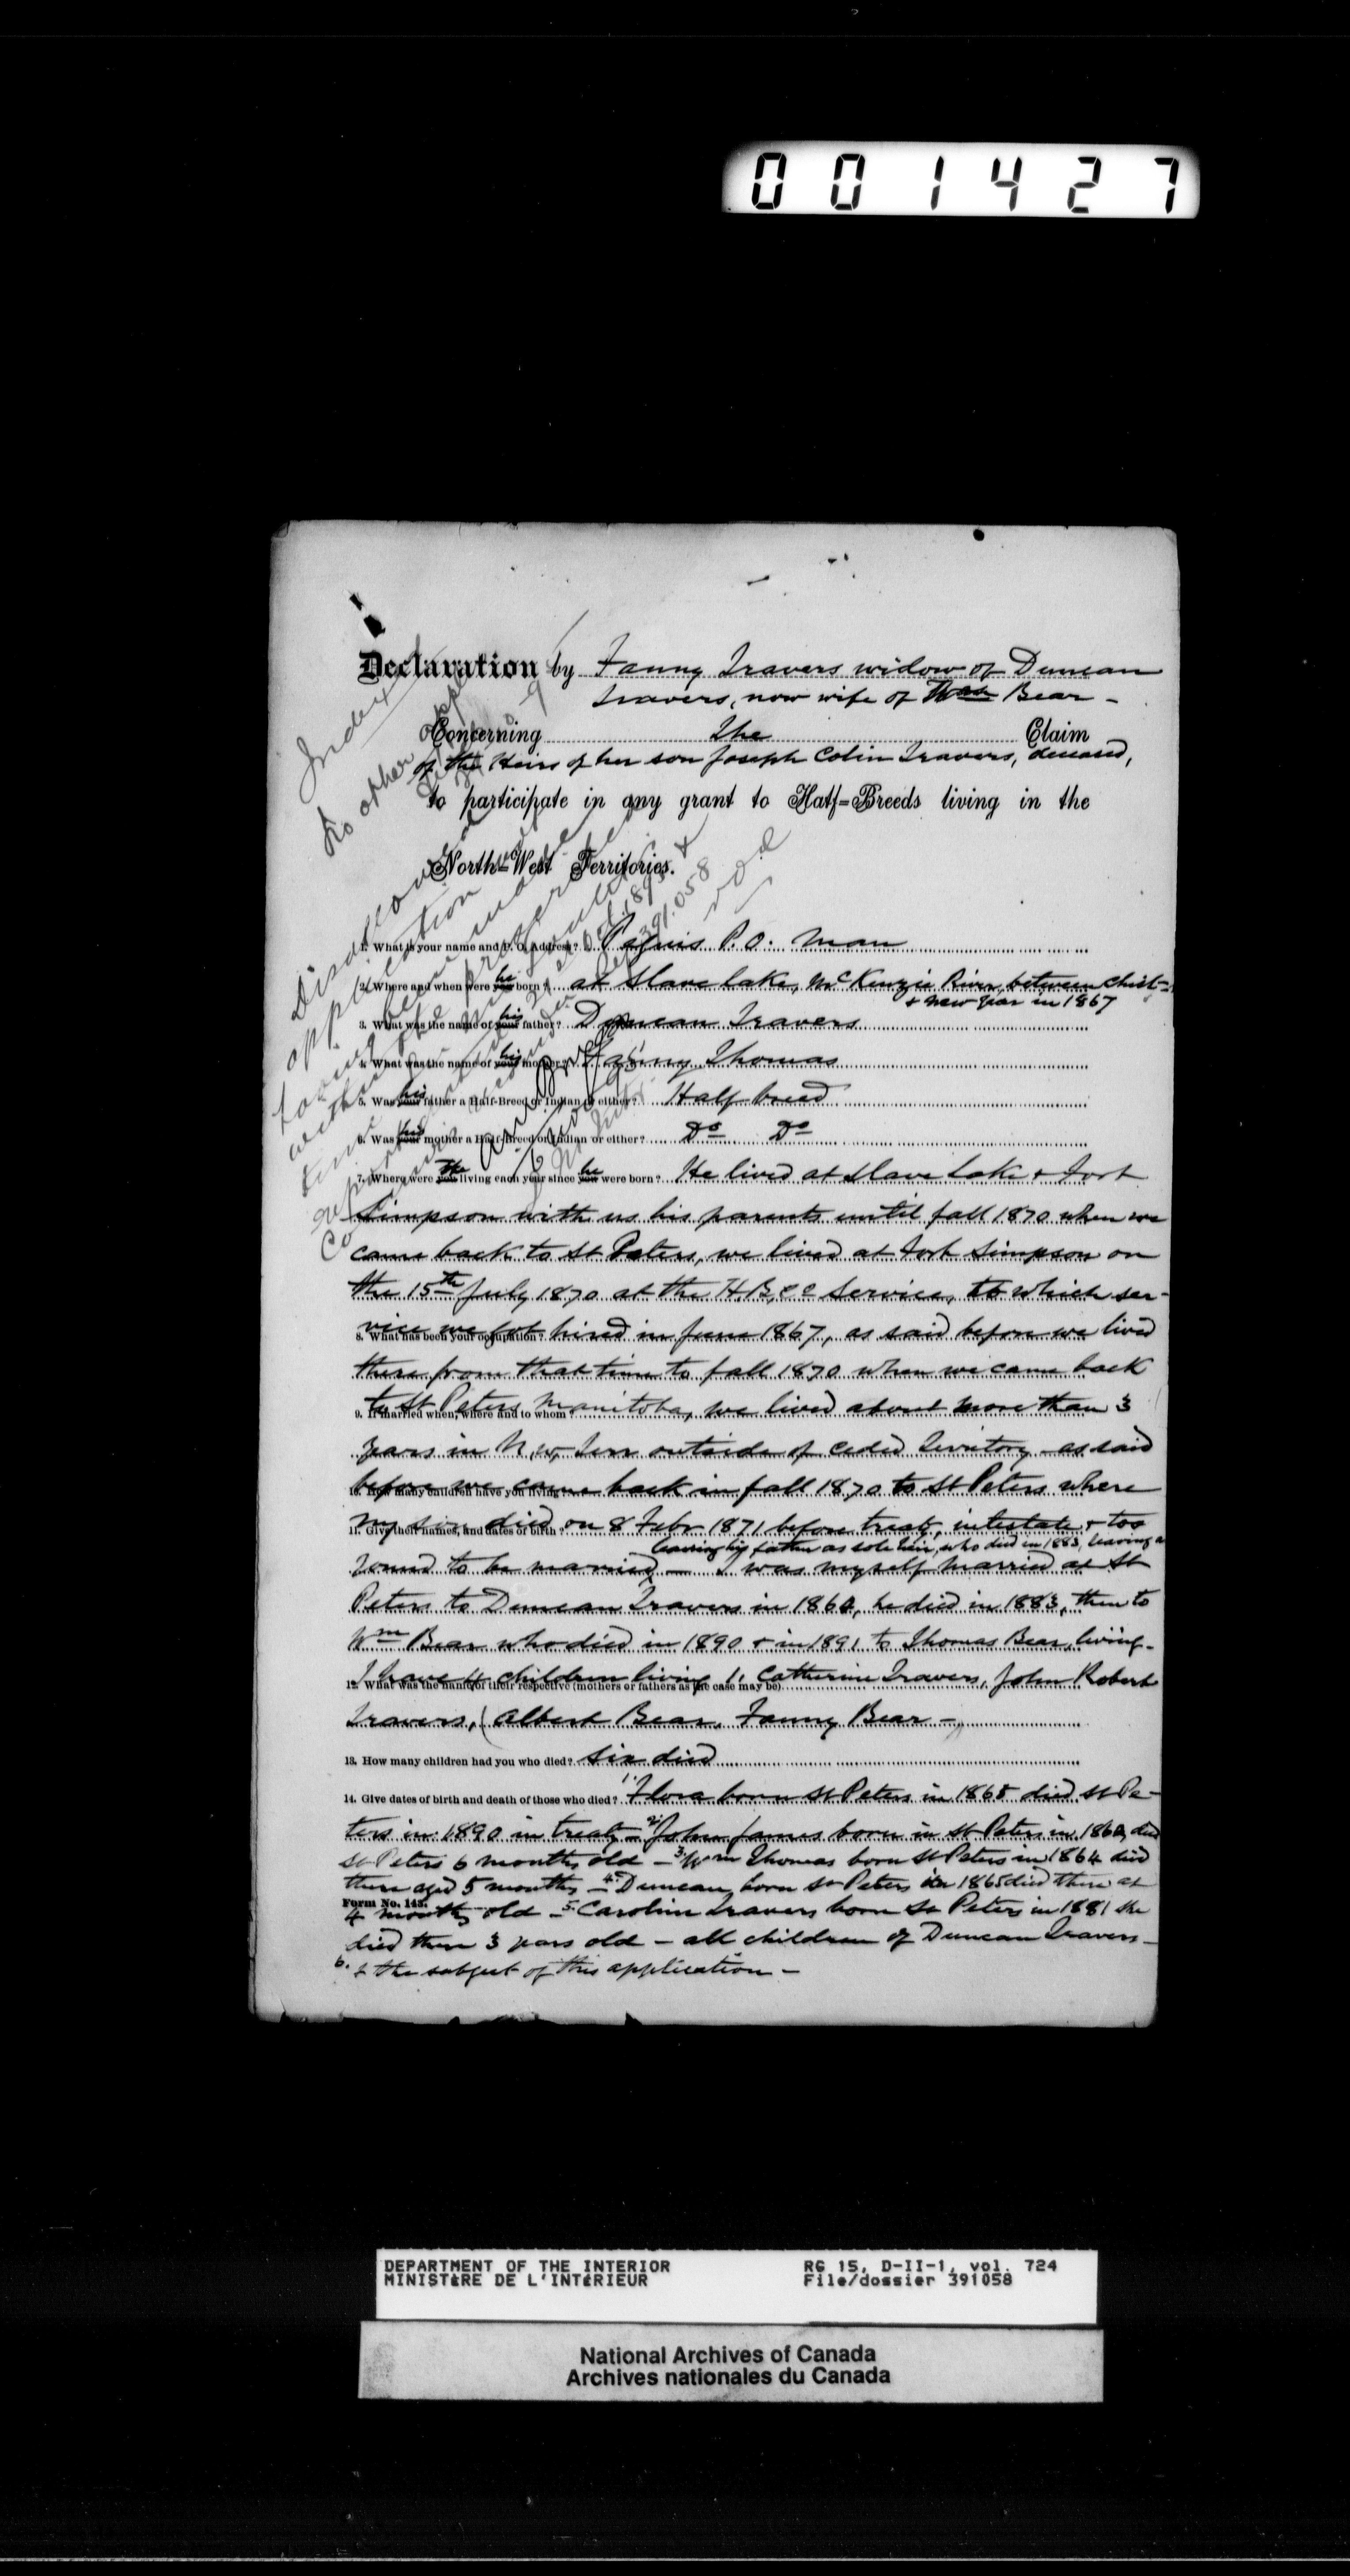 001427
Declaration by Fanny Travers widow of Duncan
Travers, now wife of Thos Bear -
Concerning The Claim
of the Heirs of her son Joseph Colin Travers, deceased,
to participate in any grant to Half=Breeds living in the
North=West Territories.
Index
No other appl
Disallowed
application
having been made
within the prescribed
time
391.058
1. What is your name and P. O. Address? Peguis P.O. Man
2. Where and when were you he born? at Slave lake, McKenzie River, between Christ-
& new year in 1867
3. What was the name of your his father? Duncan Travers
4. What was the name of your his mother? Fanny Thomas
5. Was your his father a Half-Breed or Indian or either? Half breed
6. Was your his mother a Half-Breed or Indian or either? Do Do
7. Where were you living each year since you he were born? He lived at Slave Lake & Fort
Simpson with us his parents until fall 1870 when we
came back to St Peters, we lived at Fort Simpson on
the 15th July 1870 at the H.B.Co service, to which ser-
8. What has been your occupation?
vice we got hired in June 1867, as said before we lived
there from that time to fall 1870 when we came back
9. If married when, where and to whom?
to St Peters Manitoba, we lived about more than 3
years in N.W. Terr outside of ceded Territory - as said
10. How many children have you living?
before we came back in fall 1870 to St Peters where
11. Give their names, and dates of birth?
my son died on 8 Febr 1871 before treaty, intestate & too
leaving his father as sole heir, who died in 1883, leaving
young to be married - I was myself married at St
Peters to Duncan Travers in 1860, he died in 1883, then to
Wm Bear who died in 1890 & in 1891 to Thomas Bear, living-
12. What was the name of their respective (mothers or fathers as the case may be)
I have 4 children living 1. Catherine Travers, John Robert
Travers, (Albert Bear, Fanny Bear -
13. How many children had you who died? six died
14. Give dates of birth and death of those who died? 1. Flora born St Peters in 1868 died St Pe-
ters in 1890 in treaty - 2. John James born in St Peters in 1860, died
St Peters 6 months old - 3. Wm Thomas born St Peters in 1864 died
there aged 5 months - 4. Duncan, born St Peters in 1865 died there at
Form No. 143.
4 months old - 5. Caroline Travers born St Peters in 1881 she
died there 3 years old - all children of Duncan Travers -
6. & the subject of this application -
DEPARTMENT OF THE INTERIOR RG 15, D-II-1, vol. 724
MINISTÈRE DE L'INTÉRIEUR File/dossier 391058
National Archives of Canada
Archives nationales du Canada